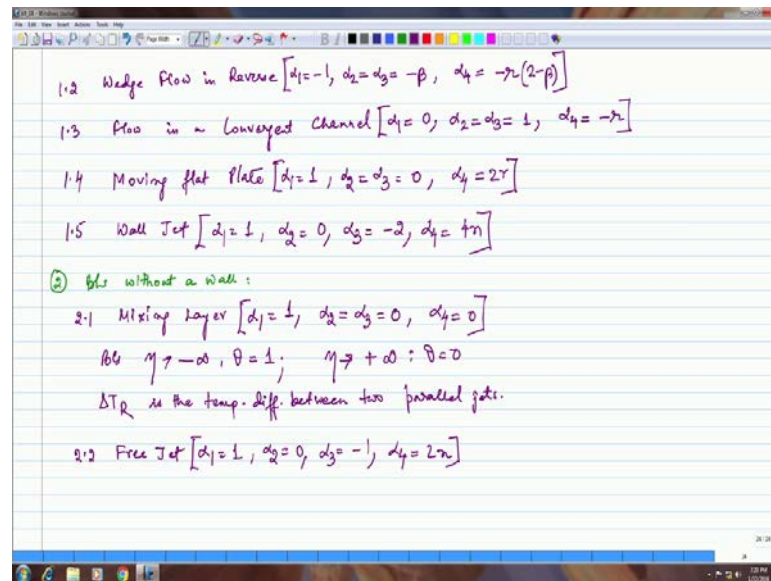 File Edit View Insert Actions Tools Help
Page Width
B I
1.2 Wedge Flow in Reverse [α₁=-1, α₂=α₃=-β, α₄=-r(2-β)]
1.3 Flow in a Convergent Channel [α₁=0, α₂=α₃=1, α₄=-r]
1.4 Moving flat Plate [α₁=1, α₂=α₃=0, α₄=2r]
1.5 Wall Jet [α₁=1, α₂=0, α₃=-2, α₄=4r]
② BLs without a wall:
2.1 Mixing Layer [α₁=1, α₂=α₃=0, α₄=0]
BCs η→-∞, θ=1; η→+∞: θ=0
ΔT_R is the temp. diff. between two parallel jets.
2.2 Free Jet [α₁=1, α₂=0, α₃=-1, α₄=2r]